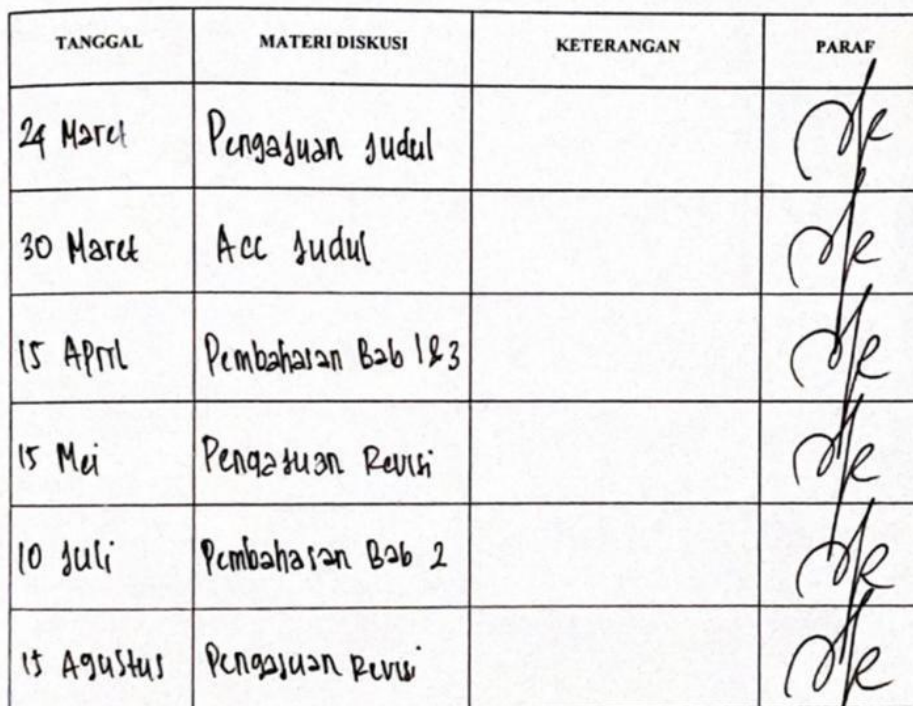 TANGGAL MATERI DISKUSI KETERANGAN PARAF
24 Maret Pengajuan Judul
30 Maret Acc Judul
15 April Pembahasan Bab 1 & 3
15 Mei Pengajuan Revisi
10 Juli Pembahasan Bab 2
15 Agustus Pengajuan Revisi